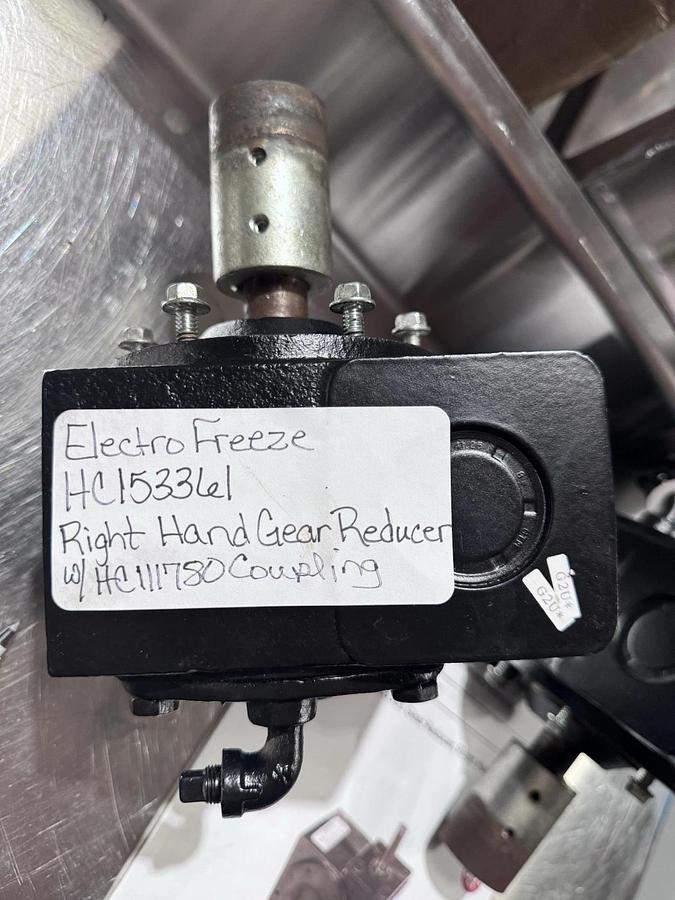 Electro Freeze
HC153361
Right Hand Gear Reducer
w/ HC111780 Coupling
G2U*
G2U*